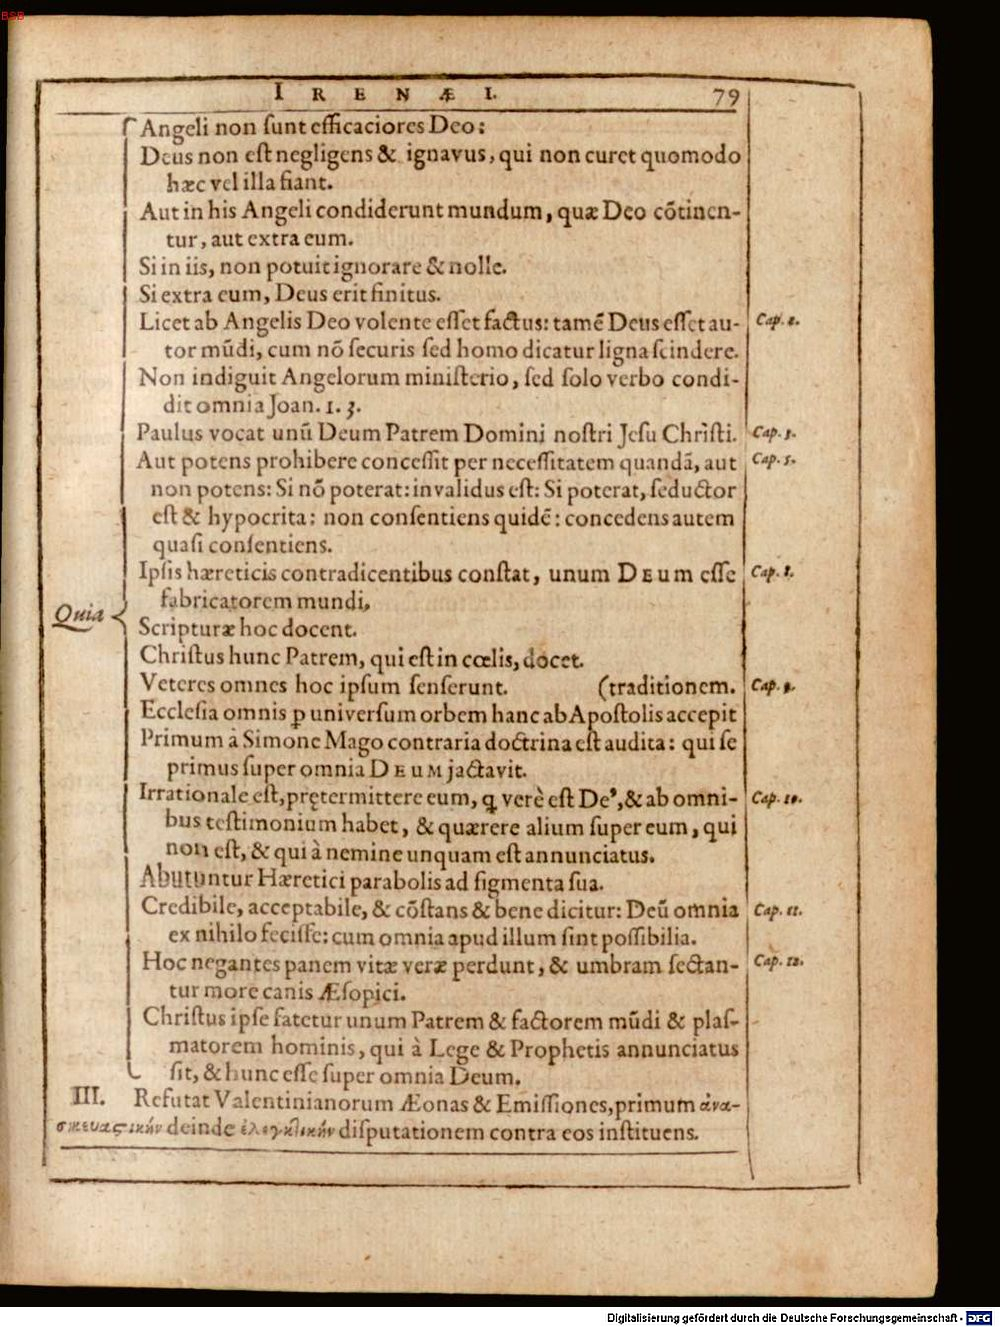 BSB
IRENÆI. 79
Angeli non sunt efficaciores Deo:
Deus non est negligens & ignavus, qui non curet quomodo
hæc vel illa fiant.
Aut in his Angeli condiderunt mundum, quæ Deo cōtinen-
tur, aut extra eum.
Si in iis, non potuit ignorare & nolle.
Si extra eum, Deus erit finitus.
Licet ab Angelis Deo volente esset factus: tamē Deus esset au- Cap. 2.
tor mūdi, cum nō securis sed homo dicatur ligna scindere.
Non indiguit Angelorum ministerio, sed solo verbo condi-
dit omnia Joan. 1. 3.
Paulus vocat unū Deum Patrem Domini nostri Jesu Christi. Cap. 3.
Aut potens prohibere concessit per necessitatem quandā, aut Cap. 5.
non potens: Si nō poterat: invalidus est: Si poterat, seductor
est & hypocrita: non consentiens quidē: concedens autem
quasi consentiens.
Ipsis hæreticis contradicentibus constat, unum DEum esse Cap. 8.
fabricatorem mundi,
Quia
Scripturæ hoc docent.
Christus hunc Patrem, qui est in cœlis, docet.
Veteres omnes hoc ipsum senserunt. (traditionem. Cap. 9.
Ecclesia omnis ꝑ universum orbem hanc ab Apostolis accepit
Primum à Simone Mago contraria doctrina est audita: qui se
primus super omnia DEUM jactavit.
Irrationale est, prętermittere eum, ꝗ verè est De', & ab omni- Cap. 10.
bus testimonium habet, & quærere alium super eum, qui
non est, & qui à nemine unquam est annunciatus.
Abutuntur Hæretici parabolis ad figmenta sua.
Credibile, acceptabile, & cōstans & bene dicitur: Deū omnia Cap. 11.
ex nihilo fecisse: cum omnia apud illum sint possibilia.
Hoc negantes panem vitæ veræ perdunt, & umbram sectan- Cap. 12.
tur more canis Æsopici.
Christus ipse fatetur unum Patrem & factorem mūdi & plas-
matorem hominis, qui à Lege & Prophetis annunciatus
sit, & hunc esse super omnia Deum.
III. Refutat Valentinianorum Æonas & Emissiones, primum ἀνα-
σκευαϛικήν deinde ἐλεγκτικήν disputationem contra eos instituens.
Digitalisierung gefördert durch die Deutsche Forschungsgemeinschaft - DFG